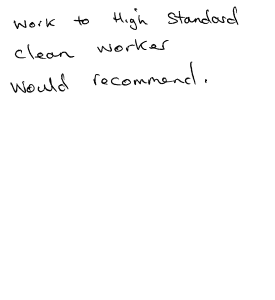 work to High Standard
clean worker
would recommend.